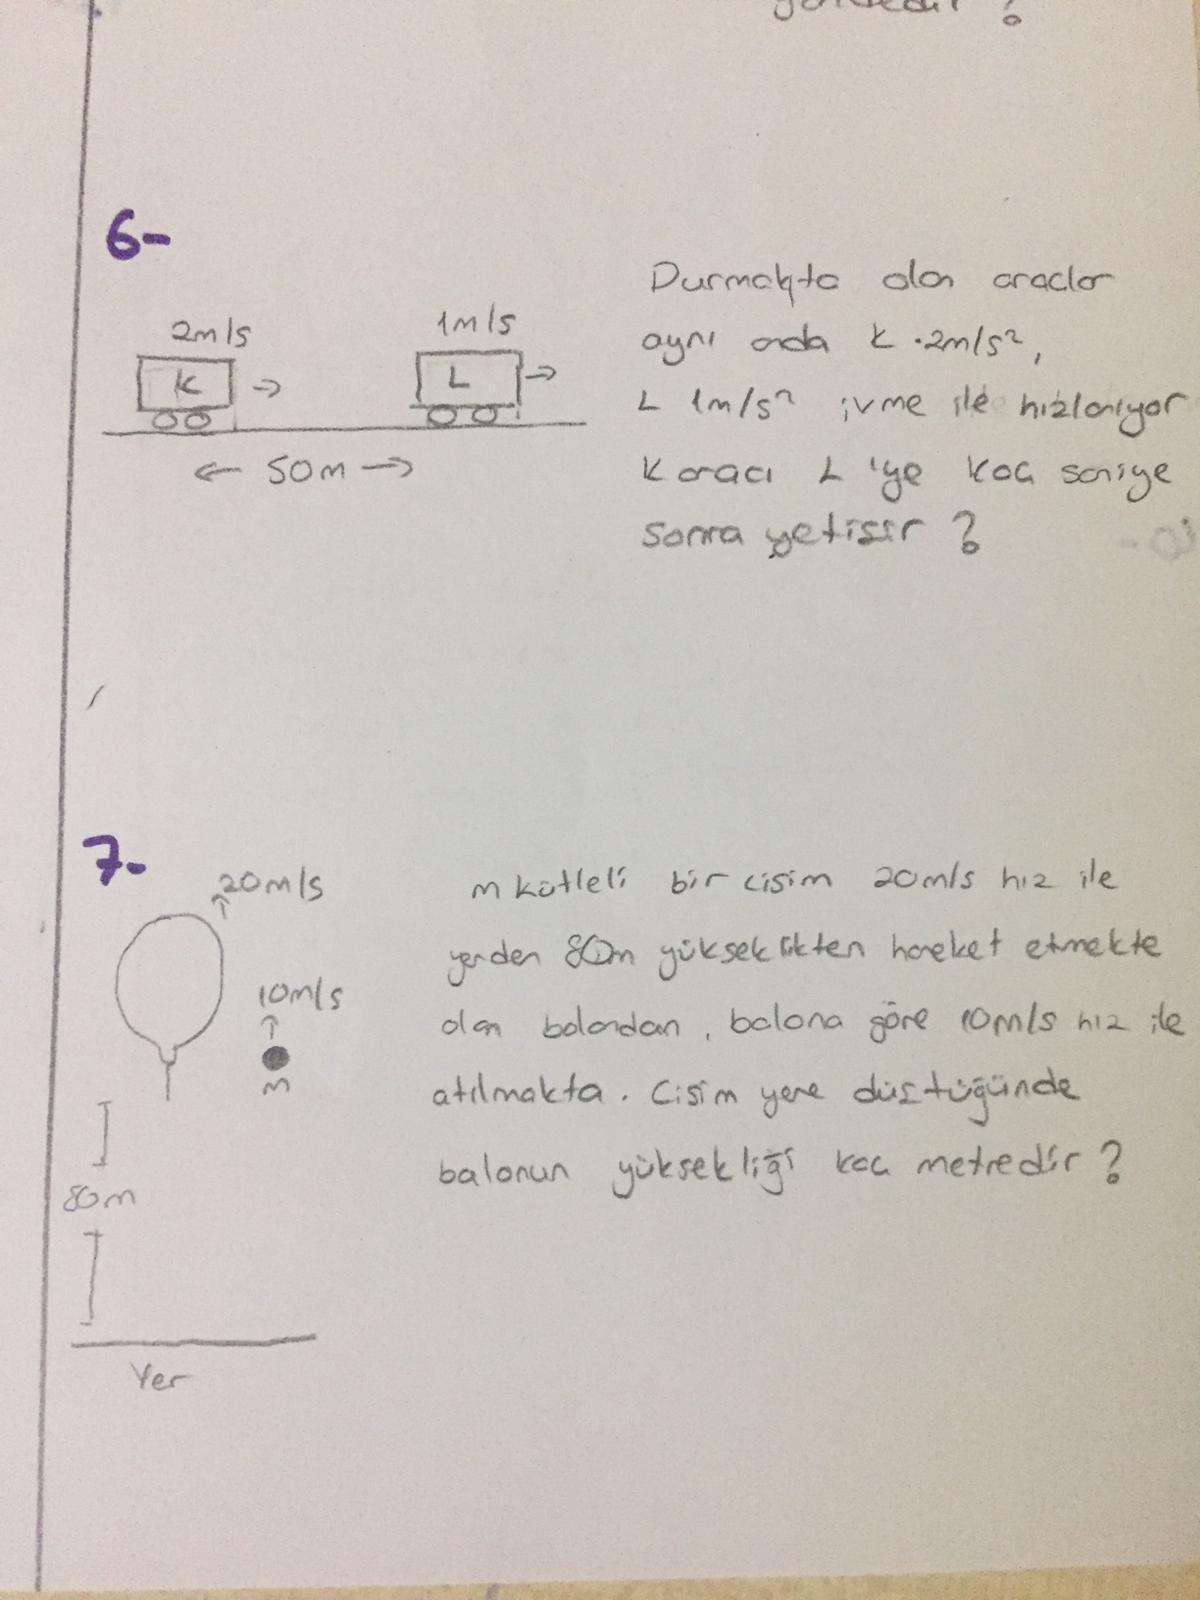 ?
6-
2m/s
1m/s
K
L
← 50m →
Durmakta olan araclar
aynı anda K . 2m/s²,
L 1m/s² ivme ile hızlanıyor
K aracı L'ye kac saniye
sonra yetisir ?
7-
20m/s
10m/s
m
80m
Yer
m kütleli bir cisim 20m/s hız ile
yerden 80m yükseklikten hareket etmekte
olan balondan, balona göre 10m/s hız ile
atılmakta. Cisim yere düştüğünde
balonun yüksekliği kac metredir ?